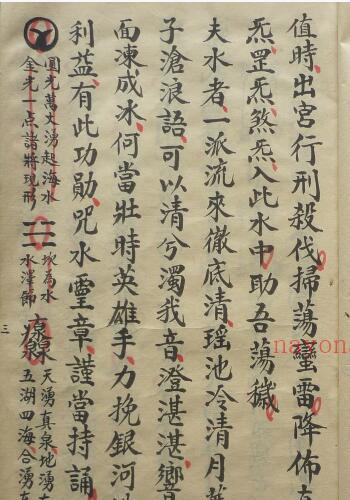 值時出宮行刑殺伐掃蕩蠻雷降佈
炁罡炁煞炁入此水中助吾蕩穢
夫水者一派流來徹底清瑤池冷清月
子滄浪語可以清兮濁我音澄湛湛響
面凍成冰何當壯時英雄手力挽銀河
利益有此功勛咒水靈章謹當持誦
圓光萬丈湧起海水
金光一点諸將現形
坎為水
水澤節
天湧真泉地湧
五湖四海合湧
三
nayona